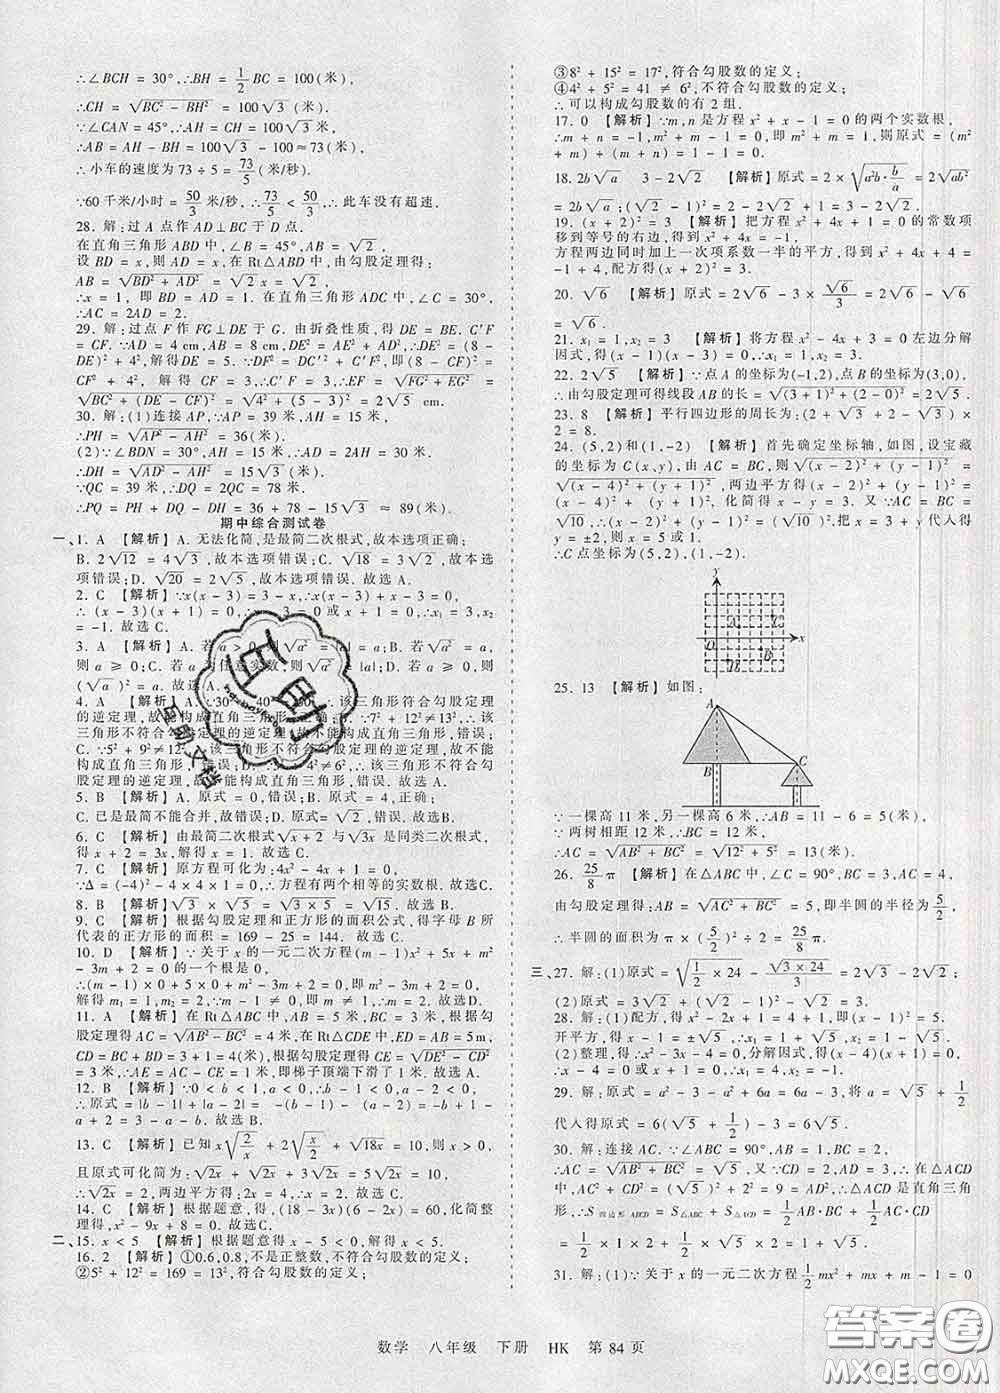 ∴∠BCH = 30°,∴BH = 1/2 BC = 100(米),
∴CH = √(BC² − BH²) = 100√3 (米),
∵∠CAN = 45°,∴AH = CH = 100√3 米,
∴AB = AH − BH = 100√3 − 100 ≈ 73(米),
∴小车的速度为 73 ÷ 5 = 73/5 (米/秒).
∵60 千米/小时 = 50/3 米/秒,∴73/5 < 50/3,∴此车没有超速.
28. 解:过 A 点作 AD⊥BC 于 D 点.
在直角三角形 ABD 中,∠B = 45°,AB = √2,
设 BD = x,则 AD = x,在 Rt△ABD 中,由勾股定理得:
AB = √(BD² + AD²) = √2 x = √2,
∴x = 1, 即 BD = AD = 1. 在直角三角形 ADC 中,∠C = 30°,
∴AC = 2AD = 2.
29. 解:过点 F 作 FG⊥DE 于 G. 由折叠性质,得 DE = BE. C′F = CF. ∵AD = 4 cm,AB = 8 cm,DE² = AE² + AD²,∴DE² = (8 −
DE)² + 4²,解得 DE = 5. ∵DF² = DC′² + C′F²,即(8 − CF)² =
CF² + 4², 解得 CF = 3,∴C′F = 3,∴EF = √(FG² + EG²) =
√(BC² + (DE − CF)²) = √(4² + (5 − 3)²) = 2√5 cm.
30. 解:(1)连接 AP,∵AP = 39 米,AH = 15 米,
∴PH = √(AP² − AH²) = 36(米).
(2)∵∠BDN = 30°,∴AD = 2AH = 30 米,
∴DH = √(AD² − AH²) = 15√3 (米).
∵QC = 39 米,∴DQ = 2QC = 78 米.
∴PQ = PH + DQ − DH = 114 − 15√3 ≈ 89(米).
期中综合测试卷
一、1. A 【解析】 A. 无法化简,是最简二次根式,故本选项正确;
B. 2√12 = 4√3,故本选项错误;C. √4 = 2,故本选项错误;D. √20 = 2√5,故本选项错误;故选 A.
2. C 【解析】 ∵x(x − 3) = 3 − x,∴x(x − 3) + (x − 3) = 0,
∴ (x − 3)(x + 1) = 0,∴x − 3 = 0 或 x + 1 = 0,∴x₁ = 3,x₂
= −1. 故选 C.
3. A 【解析】 A. 若 a > 0,则√a² = |a| = a;B. 若√a² = a,
则 a ≥ 0;C. 若 a 为任意实数,则√a² = |a|;D. 若√a² = a,
则 a ≥ 0,(√a)² = a. 故选 A.
5. B 【解析】 A. 原式 = 0,错误;B. 原式 = 4,正确;
C. 已是最简不能合并,故错误;D. 原式 = √2,故错误;故选 B.
6. C 【解析】 由最简二次根式√(x + 2) 与√3x 是同类二次根式,
得 x + 2 = 3x,解得 x = 1. 故选 C.
7. C 【解析】 原方程可化为:4x² − 4x + 1 = 0,
∵Δ = (−4)² − 4 × 4 × 1 = 0,∴方程有两个相等的实数根. 故选 C.
8. B 【解析】 √5 × √3 = √(5 × 3) = √15. 故选 B.
9. C 【解析】 根据勾股定理和正方形的面积公式,得字母 B 所
代表的正方形的面积 = 169 − 25 = 144. 故选 C.
10. D 【解析】 ∵关于 x 的一元二次方程(m − 1)x² + 5x + m² −
3m + 2 = 0 的一个根是 0,
∴(m − 1) × 0 + 5 × 0 + m² − 3m + 2 = 0,即 m² − 3m + 2 = 0,
解得 m = 1,m = 2,∵m − 1 ≠ 0,∴m ≠ 1,∴m = 2. 故选 D.
11. A 【解析】 在 Rt△ABC 中,AB = 5 米,BC = 3 米,根据勾
股定理得 AC = √(AB² − BC²) = 4 米,在 Rt△CDE 中,ED = AB = 5m,
CD = BC + DB = 3 + 1 = 4(米),根据勾股定理得 CE = √(DE² − CD²)
= 3米,∴AE = AC − CE = 1 米,即梯子顶端下滑了 1 米. 故选 A.
12. B 【解析】 ∵0 < b < 1,∴b − 1 < 0,b − 2 < 0,
∴原式 = |b − 1| − |b − 2| = −(b − 1) − (2 − b) = −b +
1 − 2 + b = −1. 故选 B.
13. C 【解析】 已知 x√(2/x) + 2√(x/2) + √18x = 10,则 x > 0,
且原式可化简为:√2x + √2x + 3√2x = 5√2x = 10,
∴√2x = 2,两边平方得:2x = 4,∴x = 2. 故选 C.
14. C 【解析】 根据题意,得(18 − 3x)(6 − 2x) = 60,化简整
理得,x² − 9x + 8 = 0. 故选C.
二、15. x < 5 【解析】 根据题意得 5 − x > 0,解得 x < 5.
16. 2 【解析】 ①0.6,0.8,不是正整数,不符合勾股数的定义;
②5² + 12² = 169 = 13²,符合勾股数的定义;
③8² + 15² = 17²,符合勾股数的定义;
④4² + 5² = 41 ≠ 6²,不符合勾股数的定义;
∴可以构成勾股数的有 2 组.
17. 0 【解析】 ∵m,n 是方程 x² + x − 1 = 0 的两个实数根,
∴m + n = −1,m² + m − 1 = 0, 即 m² + m = 1,则原式 = (m²
+ m) + (m + n) = 1 − 1 = 0.
18. 2b√a 3 − 2√2 【解析】 原式 = 2 × √(a²b·b/a) = 2√ab²
= 2b√a;(√2 − 1)² = 2 − 2√2 + 1 = 3 − 2√2.
19. (x + 2)² = 3 【解析】 把方程 x² + 4x + 1 = 0 的常数项
移到等号的右边,得到 x² + 4x = −1,
方程两边同时加上一次项系数一半的平方,得到 x² + 4x + 4 =
−1 + 4,配方得(x + 2)² = 3.
20. √6 【解析】 原式 = 2√6 − 3 × √6/3 = 2√6 − √6 =
√6.
21. x₁ = 1,x₂ = 3 【解析】 将方程 x² − 4x + 3 = 0 左边分解
因式,得(x − 1)(x − 3) = 0.∴x₁ = 1,x₂ = 3.
22. 2√5 【解析】 ∵点 A 的坐标为(−1,2),点 B 的坐标为(3,0),
∴由勾股定理可得线段 AB 的长 = √((3 + 1)² + (2 − 0)²) = 2√5.
23. 8 【解析】 平行四边形的周长为:(2 + √3 + 2 − √3) ×
2 = 8.
24. (5,2)和(1,−2) 【解析】 首先确定坐标轴,如图,设宝藏
的坐标为 C(x、y),由 AC = BC,则√((x − 2)² + (y − 1)²) =
√((x − 4)² + (y + 1)²),两边平方得(x − 2)² + (y − 1)² =
(x − 4)² + (y + 1)²,化简得 x − y = 3. 又 ∵AC = BC =
√10,∴√((x − 2)² + (y − 1)²) = √10,把 x = 3 + y 代入得
y = ±2,则 x = 5 或 1;
∴C 点坐标为(5,2),(1,−2).
y
A
O
x
B
25. 13 【解析】 如图:
A
B
C
∵ 一棵高 11 米,另一棵高 6 米,∴AB = 11 − 6 = 5(米).
∵ 两树相距 12 米,∴BC = 12 米,
∴AC = √(AB² + BC²) = √(12² + 5²) = 13(米).
26. 25/8 π 【解析】 在△ABC 中,∠C = 90°,BC = 3,AC = 4,
由勾股定理得:AB = √(AC² + BC²) = 5,即半圆的半径为 5/2,
∴半圆的面积为 π × (5/2)² ÷ 2 = 25/8 π.
三、27. 解:(1)原式 = √(1/2 × 24) − √(3 × 24)/3 = 2√3 − 2√2;
(2)原式 = 3√10 − 10√3.
28. 解:(1)配方,得 x² − 2x + 1 = 4 + 1,即(x − 1)² = 5,
开平方,得 x − 1 = ±√5,∴x₁ = 1 + √5,x₂ = 1 − √5.
(2)整理,得 x² − 3x − 4 = 0,分解因式,得(x − 4)(x + 1) = 0,
∴x₁ = 4,x₂ = −1.
29. 解:原式 = a² − 3 − a² + 6a = 6a − 3,将 a = √5 + 1/2
代入得原式 = 6(√5 + 1/2) − 3 = 6√5.
30. 解:连接 AC,∵∠ABC = 90°,AB = 1,BC = 2,
∴AC = √(AB² + BC²) = √5,又∵CD = 2,AD = 3,在△ACD
中,AC² + CD² = (√5)² + 2² = 9 = AD²,∴△ACD 是直角三角
形,∴S四边形ABCD = S△ABC + S△ACD = 1/2 AB·BC + 1/2 AC·CD
= 1/2 × 1 × 2 + 1/2 × √5 × 2 = 1 + √5.
31. 解:(1)∵关于 x 的一元二次方程 1/2 mx² + mx + m − 1 = 0
数学 八年级 下册 HK 第 84 页
互助
互助文档
答案圈
MXQE.COM